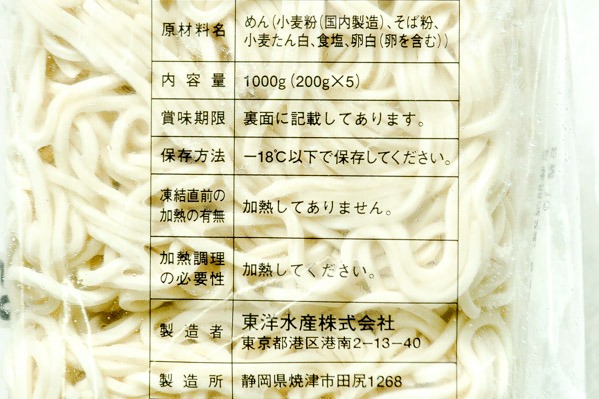 原材料名 めん(小麦粉(国内製造)、そば粉、
小麦たん白、食塩、卵白(卵を含む))
内容量 1000g(200g×5)
賞味期限 裏面に記載してあります。
保存方法 －18℃以下で保存してください。
凍結直前の
加熱の有無 加熱してありません。
加熱調理
の必要性 加熱してください。
製造者 東洋水産株式会社
東京都港区港南2−13−40
製造所 静岡県焼津市田尻1268